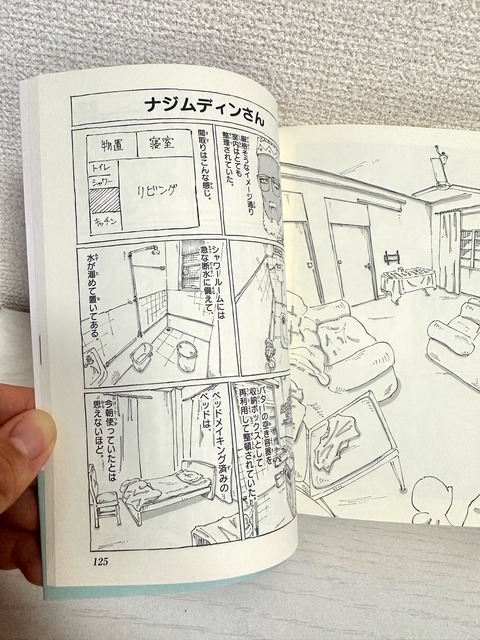 ナジムディンさん
厳格そうなイメージ通り
室内はとても
整理されていた。
間取りはこんな感じ。
物置
寝室
トイレ
シャワー
リビング
キッチン
シャワールームには
急な断水に備えて、
水が溜めて置いてある。
バターの空き容器を
収納ボックスとして
再利用して整頓されていた。
ベッドメイキング済みの
ベッドは、
今朝使っていたとは
思えないほど。
125